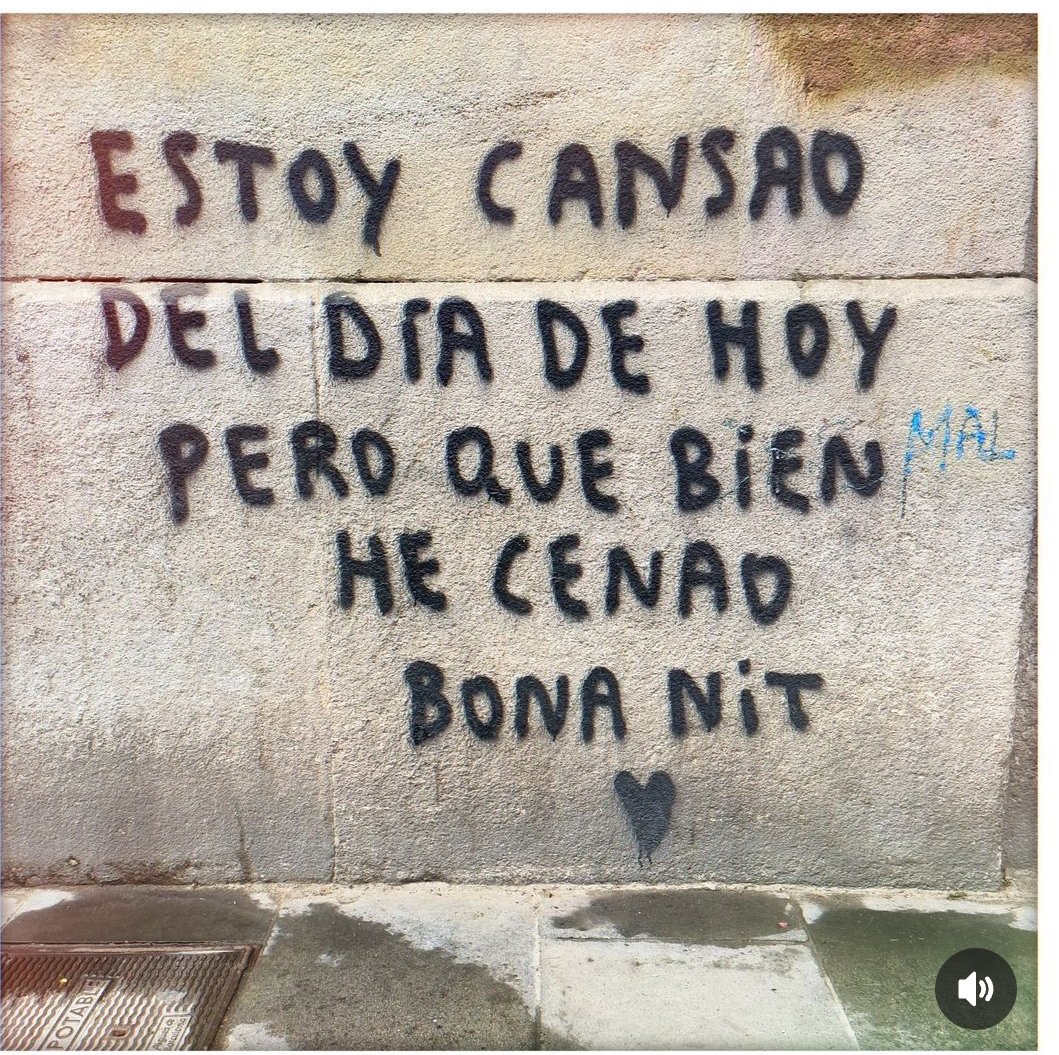 ESTOY CANSAO
DEL DÍA DE HOY
PERO QUE BiEN MAL
HE CENAO
BONA NiT
POTABL